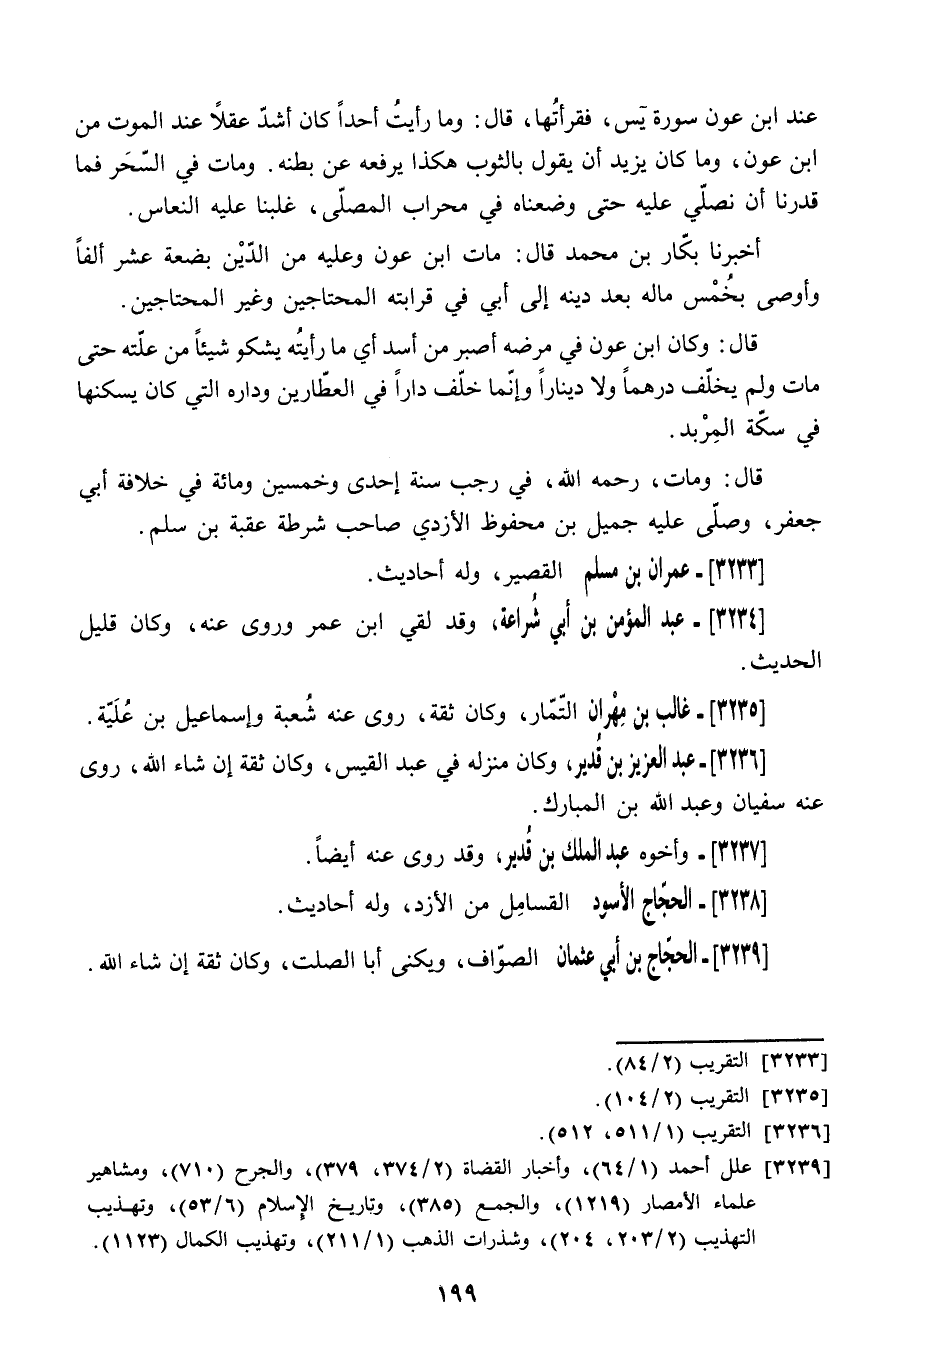 عند ابن عون سورة يٓس، فقرأتُها، قال: وما رأيتُ أحداً كان أشدّ عقلاً عند الموت من
ابن عون، وما كان يزيد أن يقول بالثوب هكذا يرفعه عن بطنه. ومات في السّحَر فما
قدرنا أن نصلّي عليه حتى وضعناه في محراب المصلّى، غلبنا عليه النعاس.
أخبرنا بكّار بن محمد قال: مات ابن عون وعليه من الدّيْن بضعة عشر ألفاً
وأوصى بخُمْس ماله بعد دينه إلى أبي في قرابته المحتاجين وغير المحتاجين.
قال: وكان ابن عون في مرضه أصبر من أسد أي ما رأيتُه يشكو شيئاً من علّته حتى
مات ولم يخلّف درهماً ولا ديناراً وإنّما خلّف داراً في العطّارين وداره التي كان يسكنها
في سكّة المِرْبد.
قال: ومات، رحمه الله، في رجب سنة إحدى وخمسين ومائة في خلافة أبي
جعفر، وصلّى عليه جميل بن محفوظ الأزدي صاحب شرطة عقبة بن سلم.
[٣٢٣٣] ـ عمران بن مسلم القصير، وله أحاديث.
[٣٢٣٤] ـ عبد المؤمن بن أبي شُراعة، وقد لقي ابن عمر وروى عنه، وكان قليل
الحديث.
[٣٢٣٥] ـ غالب بن مِهْران التّمّار، وكان ثقة، روى عنه شُعبة وإسماعيل بن عُلَيّة.
[٣٢٣٦] ـ عبد العزيز بن قُدير، وكان منزله في عبد القيس، وكان ثقة إن شاء الله، روى
عنه سفيان وعبد الله بن المبارك.
[٣٢٣٧] ـ وأخوه عبد الملك بن قُدير، وقد روى عنه أيضاً.
[٣٢٣٨] ـ الحجّاج الأسود القسامِل من الأزد، وله أحاديث.
[٣٢٣٩] ـ الحجّاج بن أبي عثمان الصوّاف، ويكنى أبا الصلت، وكان ثقة إن شاء الله.
[٣٢٣٣] التقريب (٨٤/٢).
[٣٢٣٥] التقريب (١٠٤/٢).
[٣٢٣٦] التقريب (٥١١/١، ٥١٢).
[٣٢٣٩] علل أحمد (٦٤/١)، وأخبار القضاة (٣٧٤/٢، ٣٧٩)، والجرح (٧١٠)، ومشاهير
علماء الأمصار (١٢١٩)، والجمع (٣٨٥)، وتاريخ الإسلام (٥٣/٦)، وتهذيب
التهذيب (٢٠٣/٢، ٢٠٤)، وشذرات الذهب (٢١١/١)، وتهذيب الكمال (١١٢٣).
١٩٩